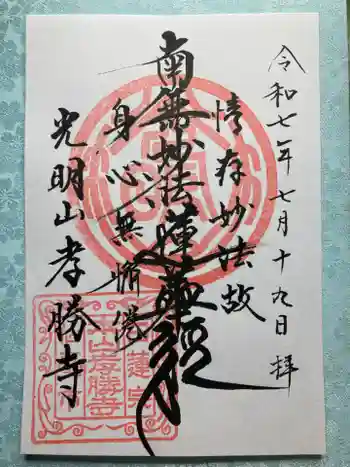 令和七年七月十九日 拝
情存妙法故
南無妙法蓮華經
身心無懈倦
光明山孝勝寺